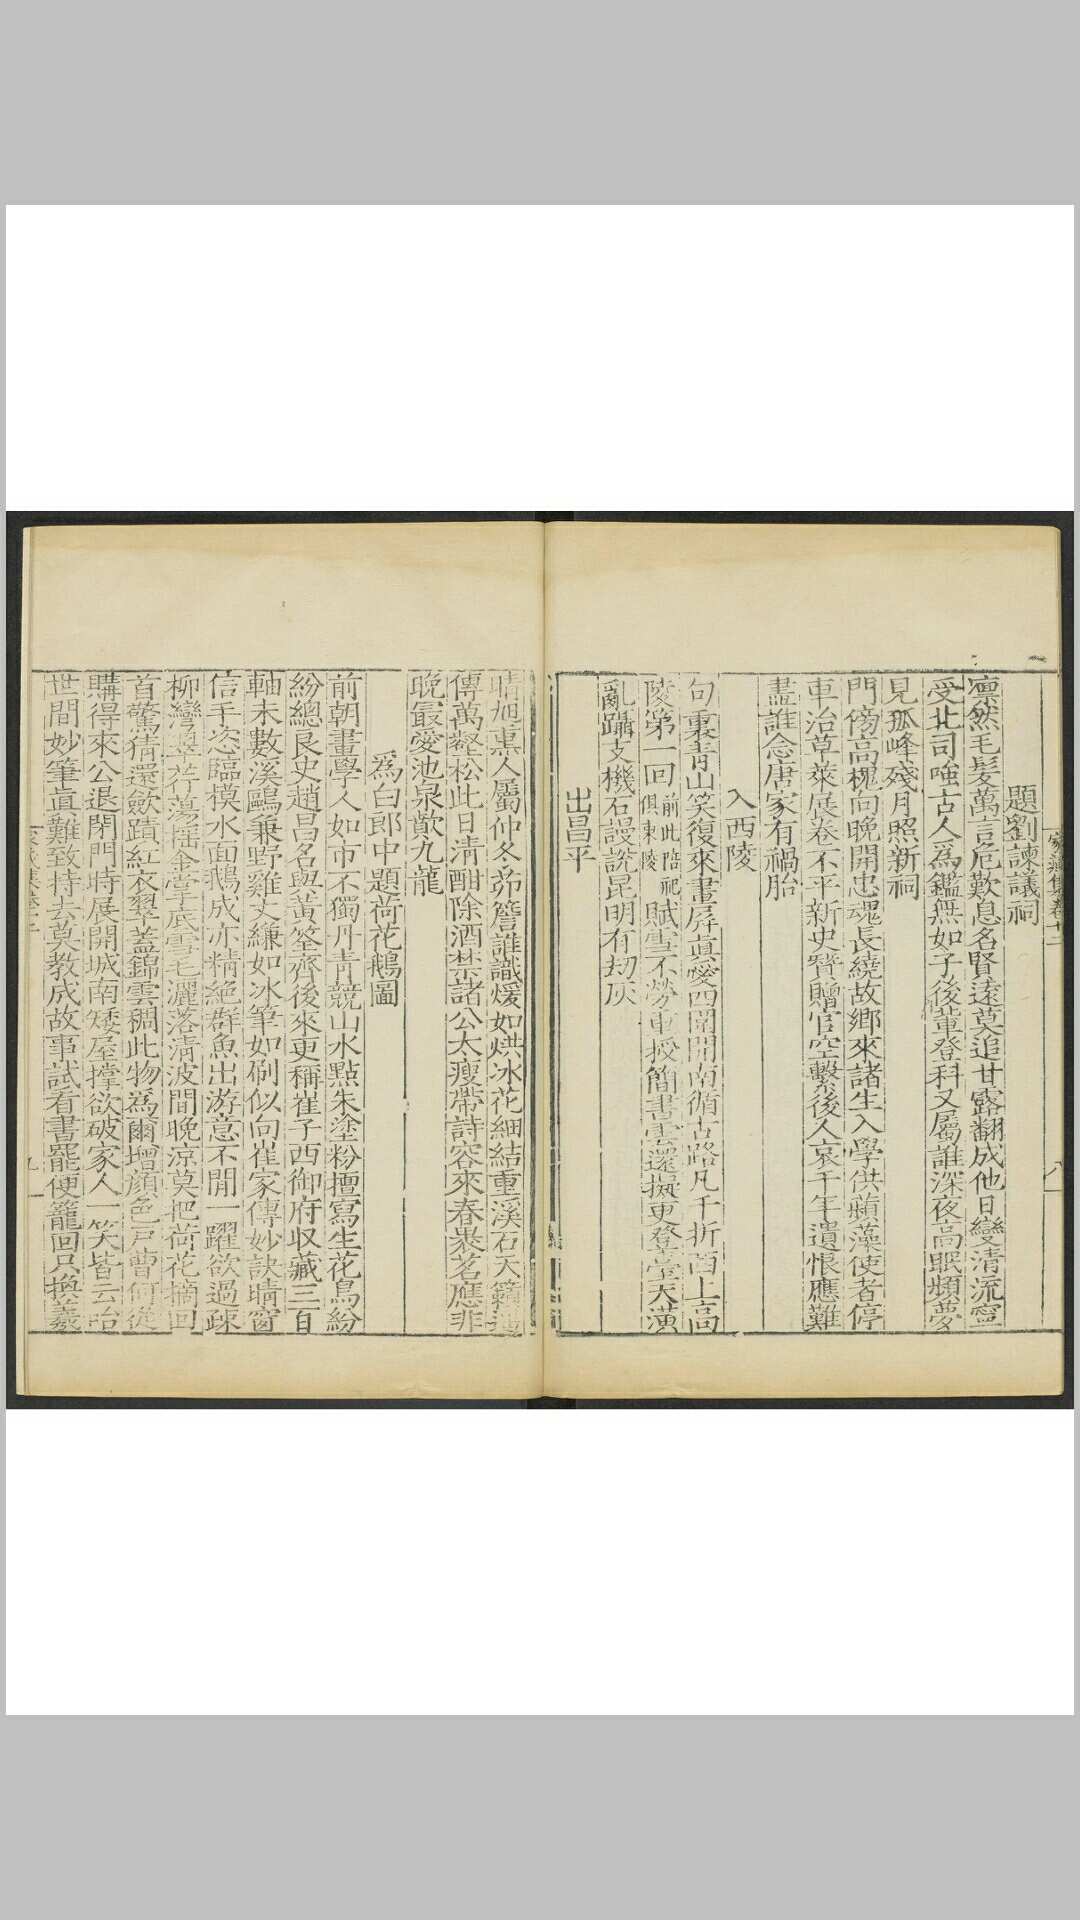 家藏集卷十二
八
題劉諫議祠
凛然毛髮萬言危歎息名賢遠莫追甘露翻成他日變清流寧
受北司嗤古人爲鑑無如子後輩登科又屬誰深夜高眠頻夢
見孤峰殘月照新祠
門傍高槐向晚開忠魂長繞故鄉來諸生入學供蘋藻使者停
車治草萊展卷不平新史贊贈官空繫後人哀千年遺恨應難
盡誰念唐家有禍胎
入西陵
句裏青山笑復來畫屏眞愛四圍開南循古路凡千折西上高
陵第一回前此陪祀俱東陵賦雪不勞重授簡書雲還擬更登臺天潢
亂躡支機石謾說昆明有刧灰
出昌平
晴旭熏人屬仲冬茆簷誰識煖如烘冰花細結重溪石天籟遥
傳萬壑松此日清酣除酒禁諸公太瘦帶詩容來春裹茗應非
晚最愛池泉歕九龍
爲白郎中題荷花鵝圖
前朝畫學人如市不獨丹青競山水點朱塗粉擅寫生花鳥紛
紛總良史趙昌名與黄筌齊後來更稱崔子西御府収藏三百
軸未數溪鷗兼野雞丈縑如冰筆如刷似向崔家傳妙訣晴窗
信手恣臨模水面鵝成亦精絶群魚出游意不閒一躍欲過疎
柳灣 荇蕩揺金掌底雪毛灑落清波間晚凉莫把荷花摘回
首驚猜還歛蹟紅衣翠蓋錦雲稠此物爲爾增顔色戸曹何從
購得來公退閉門時展開城南矮屋撑欲破家人一笑皆云咍
世間妙筆眞難致持去莫教成故事試看書罷便籠回只換羲
家藏集卷十二
九